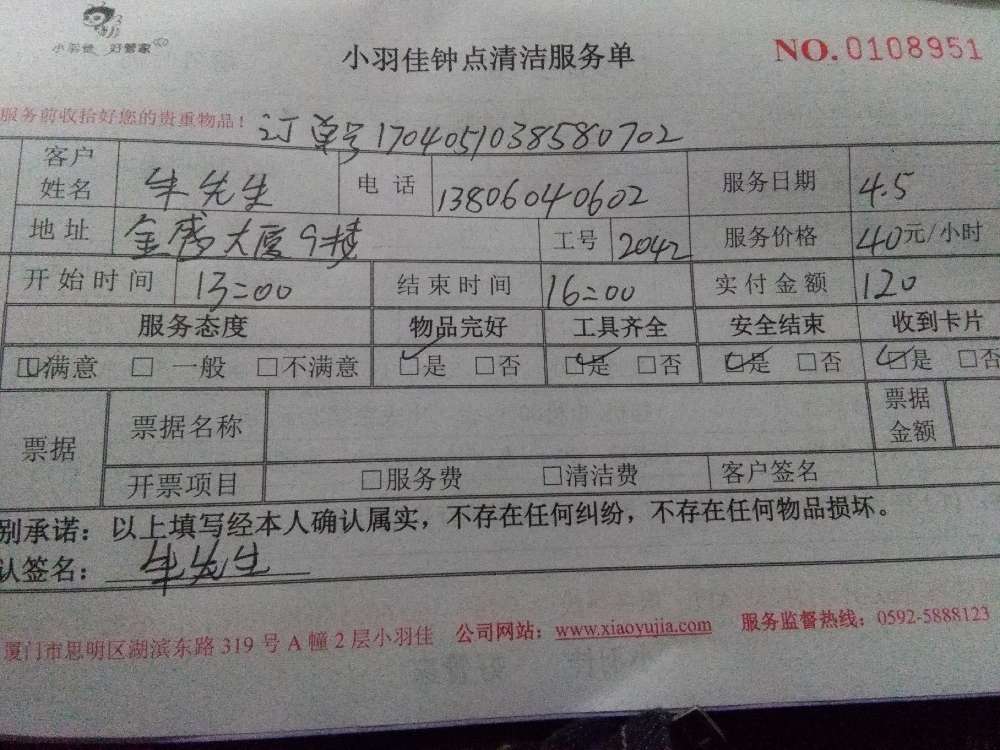 小羽佳 好管家
小羽佳钟点清洁服务单
NO.0108951
服务前收拾好您的贵重物品！
订单号1704051038580702
客户姓名 牛先生 电话 13806040602 服务日期 4.5
地址 金盛大厦9楼 工号 2042 服务价格 40元/小时
开始时间 13:00 结束时间 16:00 实付金额 120
服务态度 物品完好 工具齐全 安全结束 收到卡片
☑满意 □一般 □不满意 ☑是 □否 ☑是 □否 ☑是 □否 ☑是 □否
票据 票据名称 票据金额
开票项目 □服务费 □清洁费 客户签名
别承诺：以上填写经本人确认属实，不存在任何纠纷，不存在任何物品损坏。
认签名：牛先生
厦门市思明区湖滨东路319号A幢2层小羽佳 公司网站：www.xiaoyujia.com 服务监督热线：0592-5888123